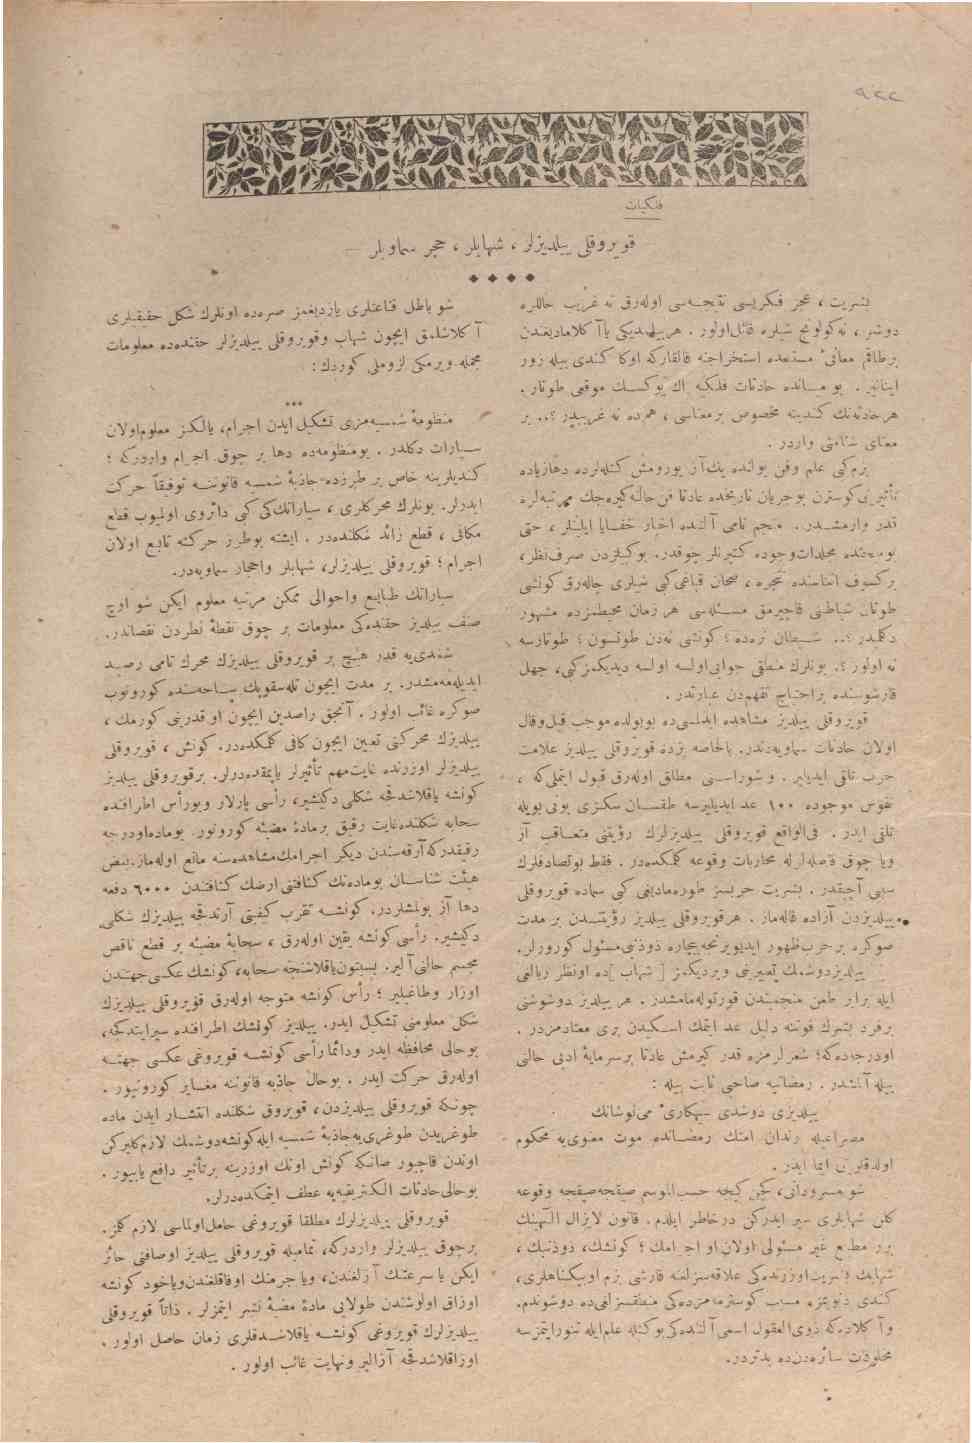 ٩٢٢
فلكيات
قويروقلى ييلديزلر ، شهابلر ، حجر سماويلر —
بشريت ، عجز فكريسى نتيجه‌سى اوله‌رق نه غريب حاللره
دوشر ، نه كولونج شيلره قائل اولور . هر بيلمديكى يا آكلامديغندن
برطاقم معانئ مستبعده استخراجنه قالقاركه اوكا كندى بيله زور
اينانير . بو مسانده حادثات فلكيه اك يوكسك موقعى طوتار .
هر حادثه‌نك كندينه مخصوص برمعناسى ، همده نه غريبدر ؟.. بر
معناى شنامتى واردر .
بزم كبى علم وفن يولنده پك آز يورومش كتله‌لرده دها زياده
تأثيرينى كوسترن بوجريان تاريخده عادتا فن حالنه كيره‌جك مرتبه‌لره
قدر وارمشدر . منجم نامى آلتنده اخبار خفايا ايلينلر ، حتى
بومبحثده مجلدات وجوده كتيرنلر چوقدر. بوكبيلردن صرف نظر ،
بر كسوف اثناسنده تنجره ، صحان قپاغى كبى شيلرى چاله‌رق كونشى
طوتان شياطينى قاچيرمق مسئله‌سى هر زمان محيطمزده مشهور
دكلميدر ؟.. شيطان نره‌ده ؟ كونشى نه‌دن طوتسون ؟ طوتارسه
نه اولور ؟. بونلرك منطقى جوابى اولسه اولسه ديديكمز كبى ، جهل
قارشوسنده بر احتياج تفهمدن عبارتدر .
قويروقلى ييلديز مشاهده ايدلمسى ده بو يولده موجب قيل وقال
اولان حادثات سماويه‌دندر. بالخاصه بزده قويروقلى ييلديز علامت
حرب تلقى ايديلير . و شوراسنى مطلق اوله‌رق قبول ايتملى كه ،
نفوس موجوده ١٠٠ عد ايديليرسه طقسان سكزى بونى بويله
تلقى ايدر . فى الواقع قويروقلى ييلديزلرك رؤيتنى متعاقب آز
ويا چوق فاصله‌لرله محاربات وقوعه كلمكده‌در . فقط بو تصادفلرك
سببى آچيقدر . بشريت حربسز طوره‌مديغى كبى سماده قويروقلى
ييلديزدن آزاده قاله‌ماز . هر قويروقلى ييلديز رؤيتندن بر مدت
صوكره بر حرب ظهور ايديويرنجه بيچاره ذوذنبى مسئول كورورلر.
ييلديز دوشمك تعبيرينى ويرديكمز [ شهاب ] ده اونظر ربالغى
ايله برابر طعن منجمندن قورتوله‌مامشدر . هر ييلديز دوشوشنى
برفرد بشرك فوتنه دليل عد ايتمك اسكيدن برى معتادمزدر .
اودرجه‌ده‌كه ؛ شعرلرمزه قدر كيرمش عادتا بر سرمايهٔ ادبى حالنى
بيله آلمشدر . رمضانيه صاحبى ثابت بيله :
ييلديزى دوشدى سپهكارئ مى‌نوشانك
مصراعيله رندان امتك رمضانده موت معنوى‌يه محكوم
اولدقلرينى ايما ايدر .
شو مسروداتى ، كچن كيجه حسب الموسم صيقجه صيقجه وقوعه
كلن شهابلرى سير ايدركن در خاطر ايلدم . قانون لايزال الٓهينك
برر مطيع غير مسئولى اولان او اجرامك ؛ كونشك ، ذوذنبك ،
شهابك بشريت اوزرنده‌كى علاقه‌سزلغنه قارشى بزم او بيكناهلرى ،
كندى دنيومزه سبب كوسترمه‌مزده‌كى منطقسزلغى ده دوشوندم.
و آكلادم كه ذوى العقول اسمى آلتنده‌كى بوكتله علم ايله تنور ايتمزسه
مخلوقات سائره‌دن ده بدتردر.
شو باطل قناعتلرى يازديغمز صره‌ده اونلرك شكل حقيقيلرى
آكلاشلمق ايچون شهاب وقويروقلى ييلديزلر حقنده‌ده معلومات
مجمله ويرمكى لزوملى كوردك :
***
منظومهٔ شمسيه‌مزى تشكيل ايدن اجرام ، يالكز معلوم اولان
سيارات دكلدر . بومنظومه‌ده دها بر چوق اجرام واردركه ؛
كنديلرينه خاص بر طرزده جاذبهٔ شمسيه قانوننه توفيقاً حركت
ايدرلر. بونلرك محركلرى ، سياراتك كى كبى دائروى اولميوب قطع
مكافى ، قطع زائد شكلنده‌در . ايشته بوطرز حركته تابع اولان
اجرام ؛ قويروقلى ييلديزلر ، شهابلر واحجار سماويه‌در.
سياراتك طبايع واحوالى ممكن مرتبه معلوم ايكن شو اوچ
صنف ييلديز حقنده‌كى معلومات بر چوق نقطهٔ نظردن نقصاندر.
شمدى‌يه قدر هيچ بر قويروقلى ييلديزك محرك تامى رصيد
ايديله‌مه‌مشدر. بر مدت ايچون تله‌سقوپك ساحه‌سنده كورونوب
صوكره غائب اولور . آنجق راصدين ايچون او قدرينى كورمك ،
ييلديزك محركنى تعيين ايچون كافى كلمكده‌در. كونش ، قويروقلى
ييلديزلر اوزرنده غايت مهم تأثيرلر ياپمقده‌درلر. بر قويروقلى ييلديز
كونشه ياقلاشدقجه شكلى دكيشير ، رأسى پارلار وبورأس اطرافنده
سحابه شكلنده غايت رقيق بر مادهٔ مضيئه كورونور. بوماده اودرجه
رقيقدركه آرقه‌سندن ديكر اجرامك مشاهده‌سنه مانع اوله‌ماز. بعض
هيئت شناسان بوماده‌نك كثافتنى ارضك كثافتندن ٦٠٠٠ دفعه
دها آز بولمشلردر. كونشه تقرب كيفيتى آرتدقجه ييلديزك شكلى
دكيشير. رأسى كونشه يقين اوله‌رق ، سحابهٔ مضيئه بر قطع ناقص
مجسم حالنى آلير. بسبتون ياقلاشنجه سحابه ، كونشك عكسى جهتدن
اوزار وطاغيلير ؛ رأس كونشه متوجه اوله‌رق قويروقلى ييلديزك
شكل معلومنى تشكيل ايدر. ييلديز كونشك اطرافنده سير ايتدكجه ،
بو حالى محافظه ايدر ودائما رأسى كونشه قويروغى عكسى جهته
اوله‌رق حركت ايدر . بوحال جاذبه قانوننه مغاير كورونيور .
چونكه قويروقلى ييلديزدن ، قويروق شكلنده انتشار ايدن ماده
طوغريدن طوغرى‌يه جاذبهٔ شمسيه ايله كونشه دوشمك لازم كليركن
اوندن قاچيور صانكه كونش اونك اوزرينه بر تأثير دافع ياپيور .
بوحالى حادثات الكتريقيه‌يه عطف ايتمكده‌درلر.
قويروقلى ييلديزلرك مطلقا قويروغى حامل اولماسى لازم كلمز.
برچوق ييلديزلر واردركه ، تماميله قويروقلى ييلديز اوصافنى حائز
ايكن يا سرعتك آزلغندن ، ويا جرمنك اوفاقلغندن وياخود كونشه
اوزاق اولوشندن طولايى مادهٔ مضيئه نشر ايتمزلر . ذاتاً قويروقلى
ييلديزلرك قويروغى كونشه ياقلاشدقلرى زمان حاصل اولور .
اوزاقلاشدقجه آزالير ونهايت غائب اولور .